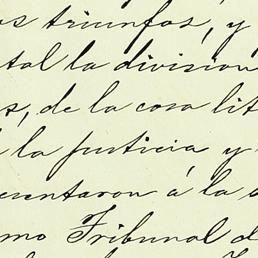 os triunfos, y
tal la division
s, de la cosa lit
la justicia y
sentaron á la
mo Tribunal d